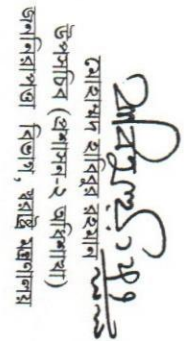 মোহাম্মদ হাবিবুর রহমান
উপসচিব (প্রশাসন-২ অধিশাখা)
জননিরাপত্তা বিভাগ, স্বরাষ্ট্র মন্ত্রণালয়